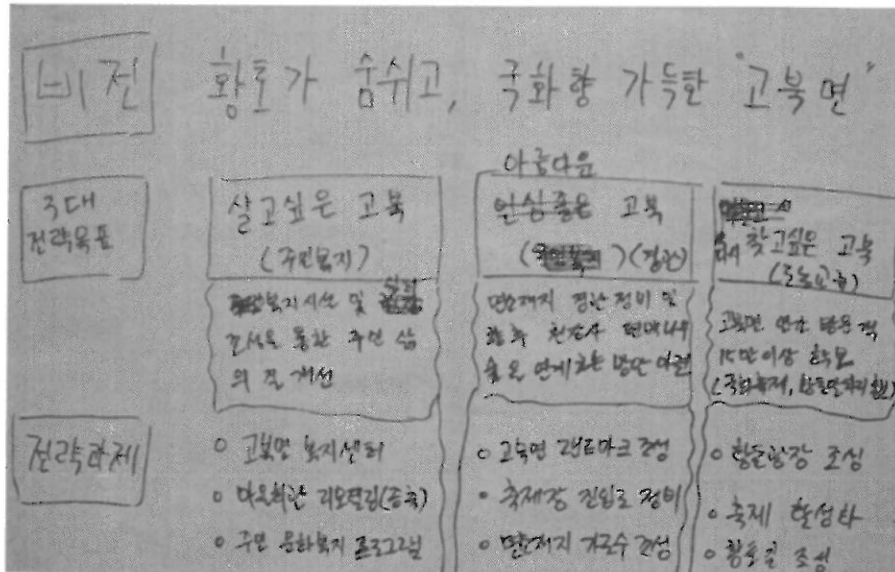 비전
황토가 숨쉬고, 국화향 가득한 "고북면"
3대
전략목표
살고싶은 고북
(주민복지)
복지시설 및
조성을 통한 주민 삶
의 질 개선
아름다운
인심좋은 고북
(경관)
면소재지 경관 정비 및
연계하는 방안 마련
다시 찾고싶은 고북
(도농교류)
고북면 연간 방문객
15만이상
전략과제
o 고북면 복지센터
o 마을회관 리모델링(증축)
o 주민 문화복지 프로그램
o 고북면 랜드마크 조성
o 축제장 진입로 정비
o 면소재지 가로수 조성
o 황토광장 조성
o 축제 활성화
o 황토길 조성